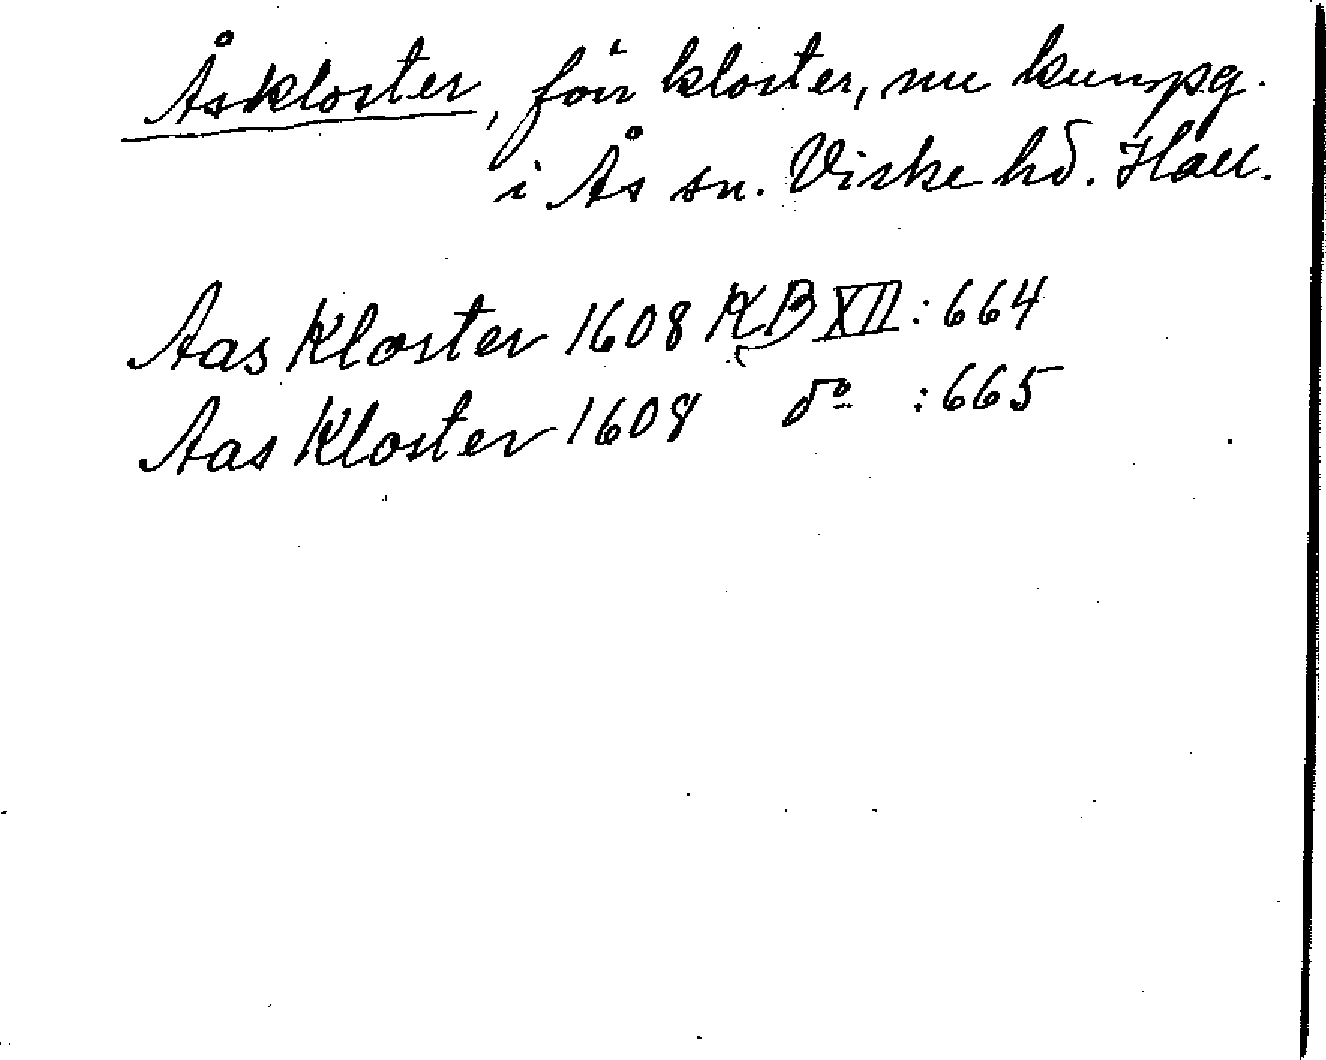 Åskloster, förr kloster, nu kungsg.
i Ås sn. Viske hd. Hall.
Aas Kloster 1608 KB XII: 664
Aas Kloster 1608 do : 665